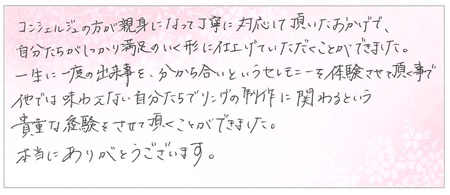 コンシェルジュの方が親身になって丁寧に対応して頂いたおかげで、
自分たちがしっかり満足のいく形に仕上げていただくことができました。
一生に一度の出来事を、分かち合いというセレモニーを体験させて頂く事で
他では味わえない自分たちでリングの制作に関わるという
貴重な経験をさせて頂くことができました。
本当にありがとうございます。